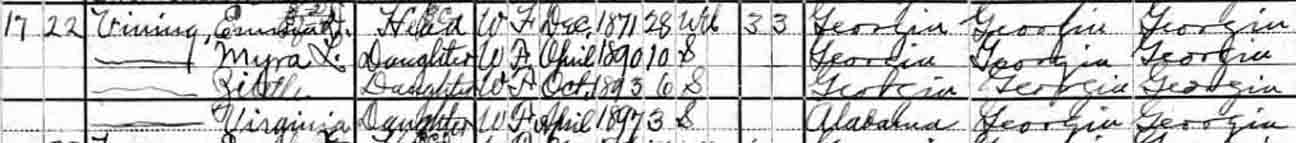 17 22 Vining, Head W F Dec. 1871 28 Wd 3 3 Georgia Georgia Georgia
Myra L. Daughter W F April 1890 10 S Georgia Georgia Georgia
Daughter W F Oct. 1893 6 S Georgia Georgia Georgia
Virginia Daughter W F April 1897 3 S Alabama Georgia Georgia